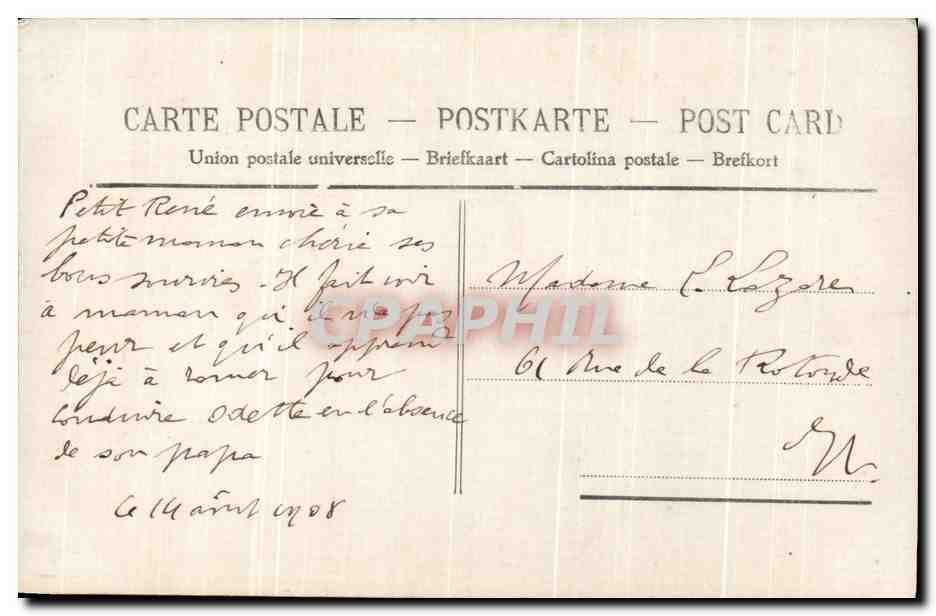 CARTE POSTALE — POSTKARTE — POST CARD
Union postale universelle — Briefkaart — Cartolina postale — Brefkort
Petit René envoie à sa
petite maman chérie ses
bons sourires. Il fait voir
à maman qu'il n'a pas
peur et qu'il apprend
déjà à ramer pour
conduire Odette en l'absence
de son papa
Le 14 août 1908
Madame L. Lazare
61 Rue de la Rotonde
CPAPHIL